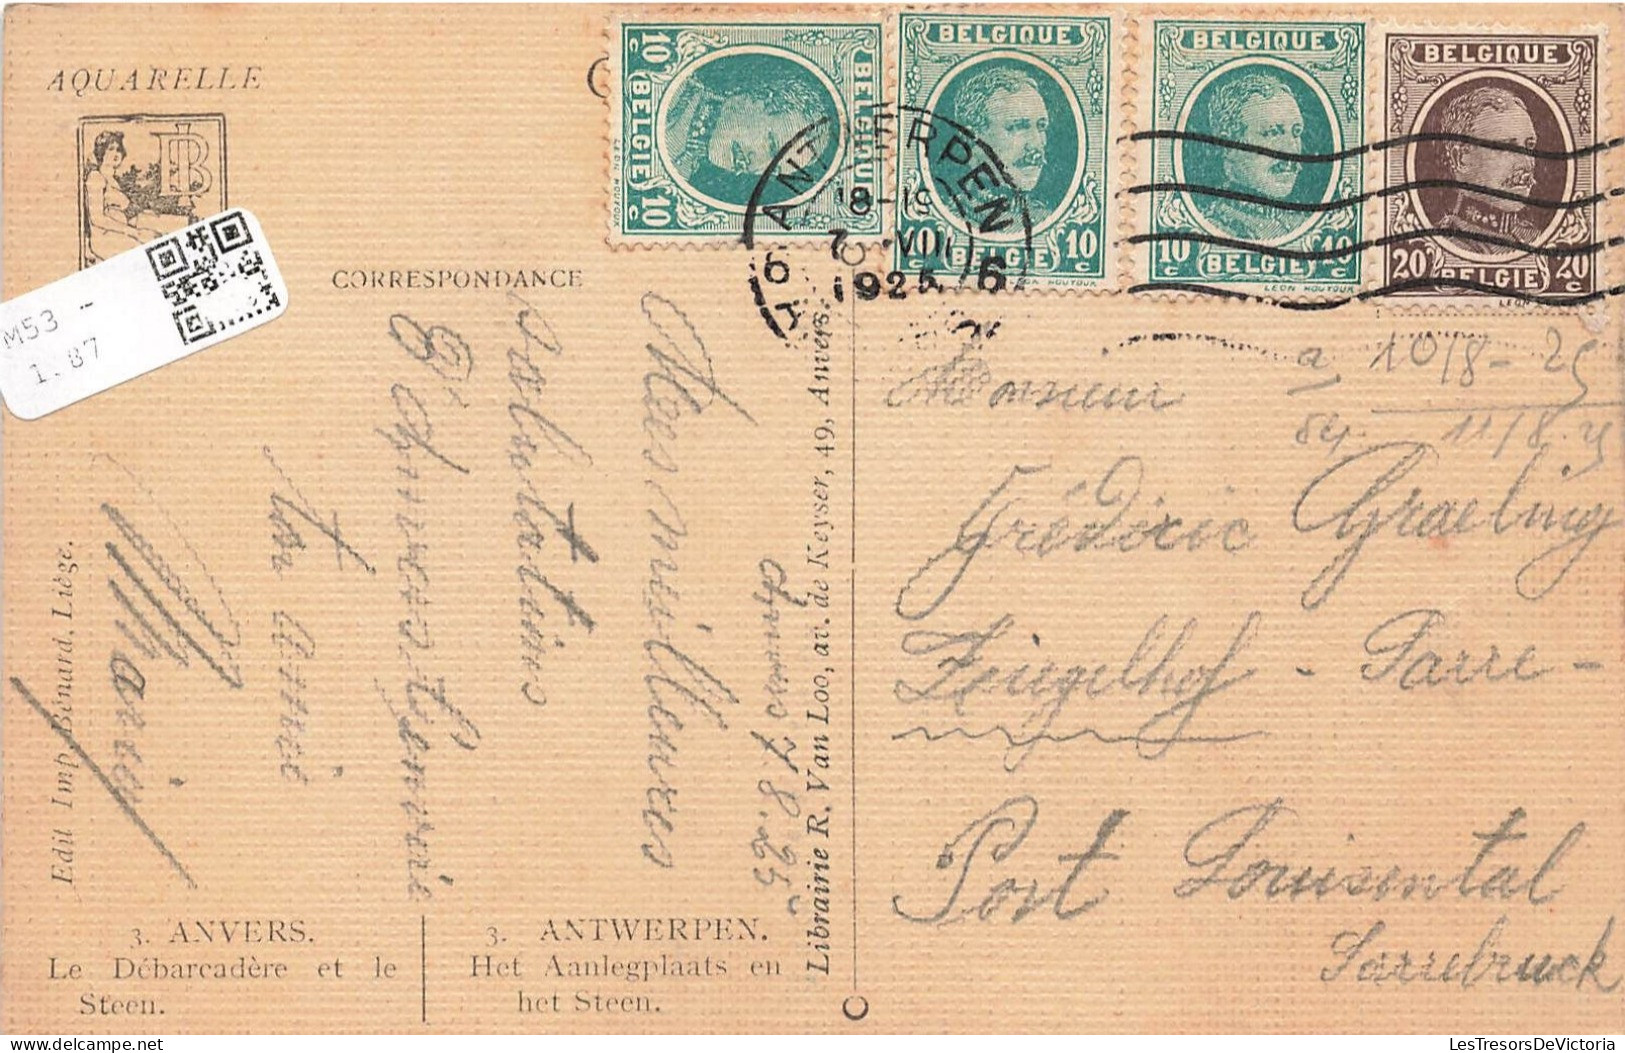 AQUARELLE
BELGIQUE
10 c
10 c
BELGIE
BELGIQUE
10 c
BELGIE
BELGIQUE
10 c
10 c
BELGIE
LEON HOUYOUX
BELGIQUE
20 c
20 c
BELGIE
ANTWERPEN
18-19
7 VIII
1925
6 6
M53 -
1.87
CORRESPONDANCE
Anvers 7.8.25
Mes meilleures
Salutations
d'Anvers
Ton amie
Marie
a 10/8-25
11/8.25
Monsieur
Frédéric Graeling
Ziegelhof - Sarre -
Port Louisental
Sarrebruck
Edit Imp. Bénard, Liège.
Librairie R. Van Loo, av. de Keyser, 49, Anvers.
3. ANVERS.
Le Débarcadère et le
Steen.
3. ANTWERPEN.
Het Aanlegplaats en
het Steen.
LesTresorsDeVictoria